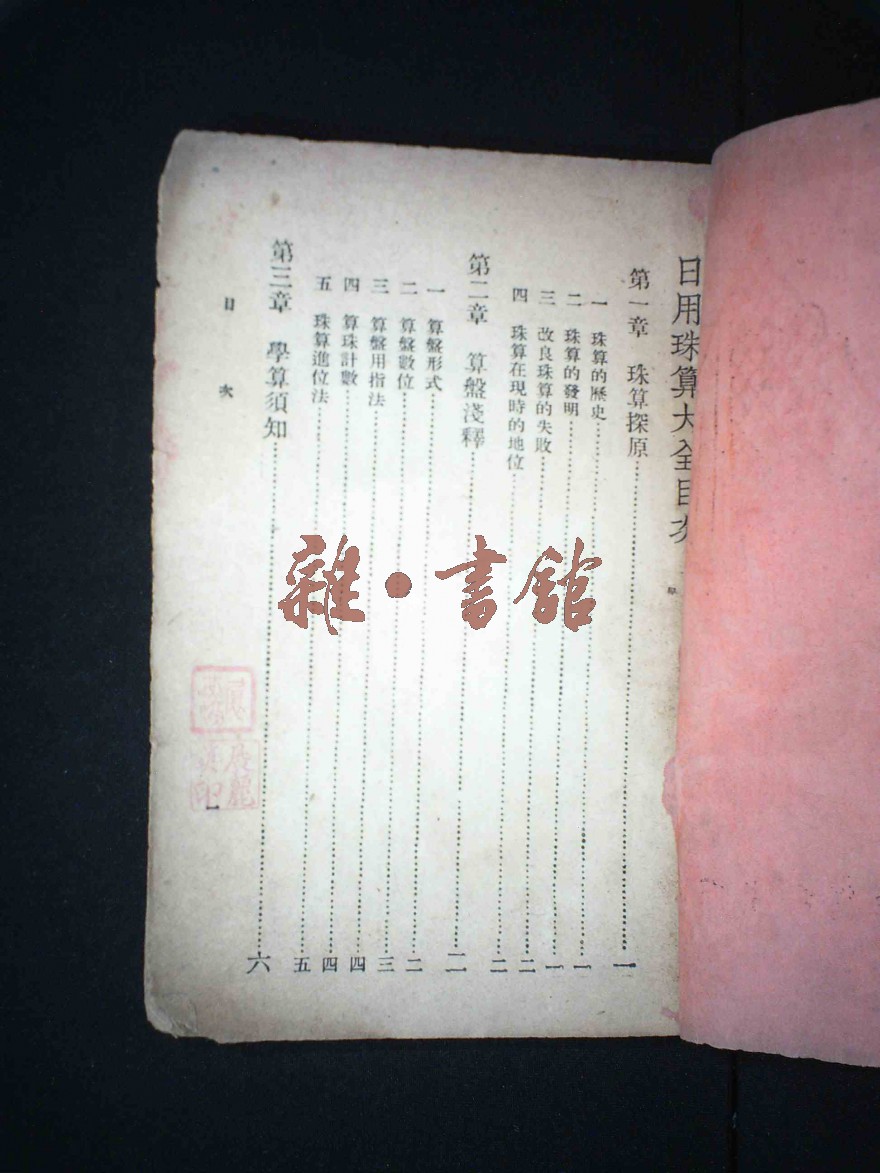 日用珠算大全目次
第一章 珠算探原……一
一 珠算的歷史……一
二 珠算的發明……一
三 改良珠算的失敗……二
四 珠算在現時的地位……二
第二章 算盤淺釋……二
一 算盤形式……二
二 算盤數位……三
三 算盤用指法……四
四 算珠計數……四
五 珠算進位法……五
第三章 學算須知……六
目次
一
雜·書館